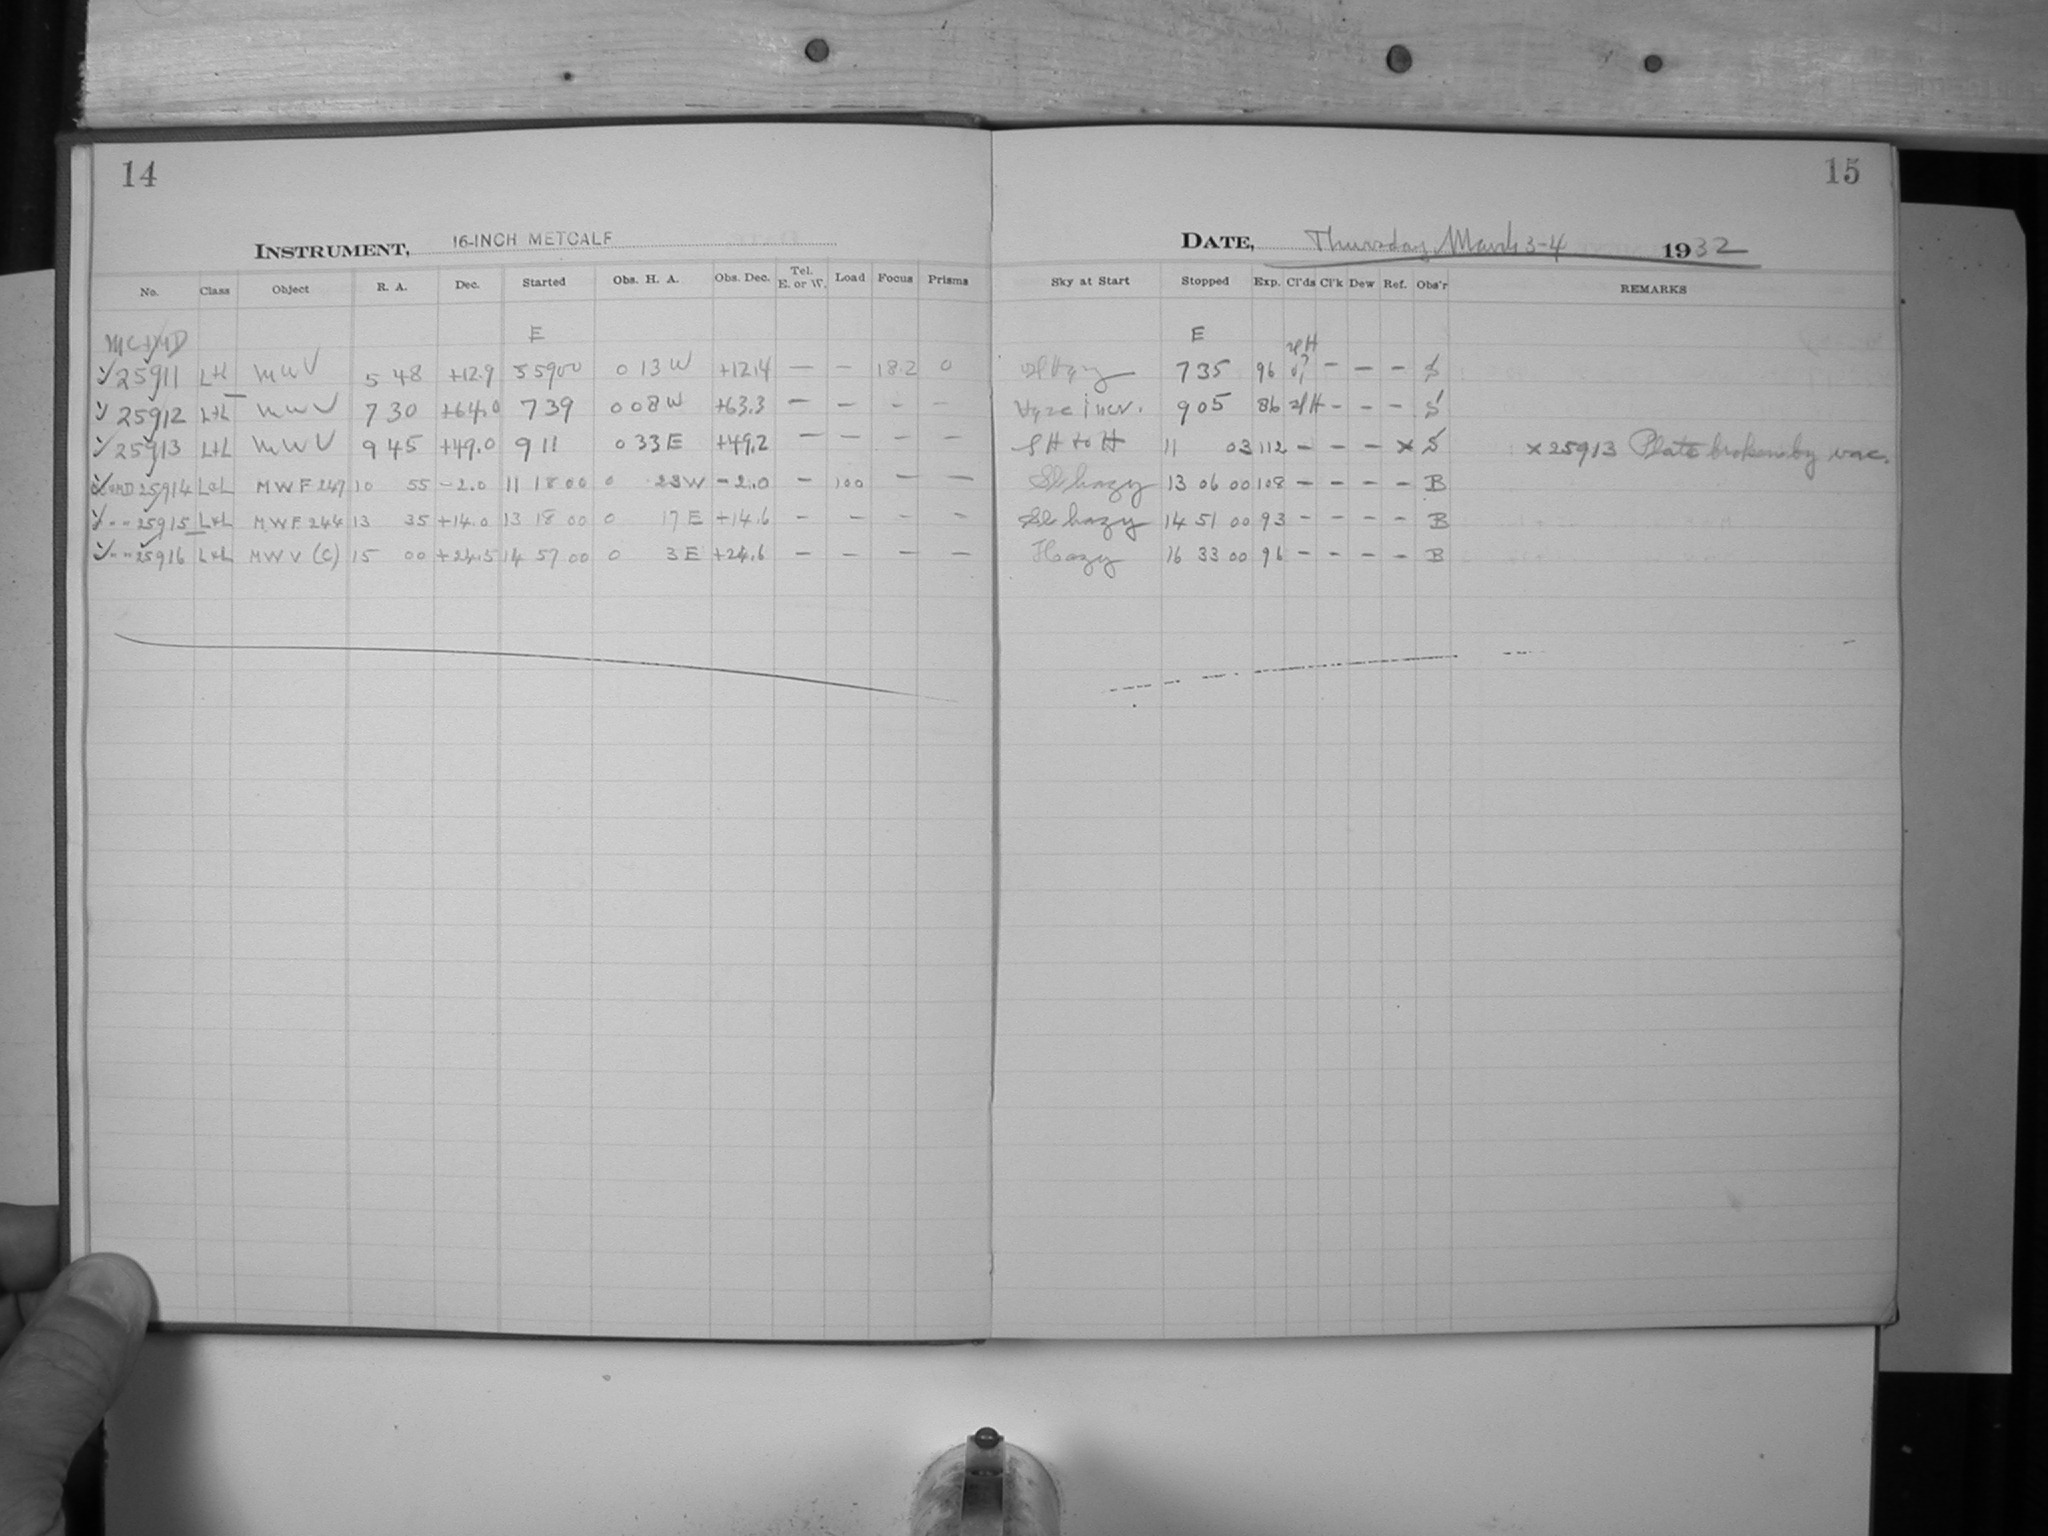 14
INSTRUMENT, 16-INCH METCALF
No. Class Object R. A. Dec. Started Obs. H. A. Obs. Dec. Tel. E. or W. Load Focus Prisms
E
25911 L+L MWV 5 48 +12.9 5 59 00 0 13 W +12.4 — — 18.2 0
25912 L+L MWV 7 30 +64.0 7 39 0 08 W +63.3 — — - -
25913 L+L MWV 9 45 +49.0 9 11 0 33 E +49.2 — — - -
25914 L+L MWF 247 10 55 -2.0 11 18 00 0 23 W -2.0 - 100 — —
" " 25915 L+L MWF 244 13 35 +14.0 13 18 00 0 17 E +14.6 - - - -
" " 25916 L+L MWV (C) 15 00 +24.5 14 57 00 0 3 E +24.6 — — — —
15
DATE, Thursday, March 3-4 1932
Sky at Start Stopped Exp. Cl'ds Cl'k Dew Ref. Obs'r REMARKS
E
7 35 96 - - - S
Haze incr. 9 05 86 slH - - - S
SH to H 11 03 112 - - - x S x 25913 Plate broken by vac.
Sl hazy 13 06 00 108 - - - - B
Sl hazy 14 51 00 93 - - - - B
Hazy 16 33 00 96 - - - - B